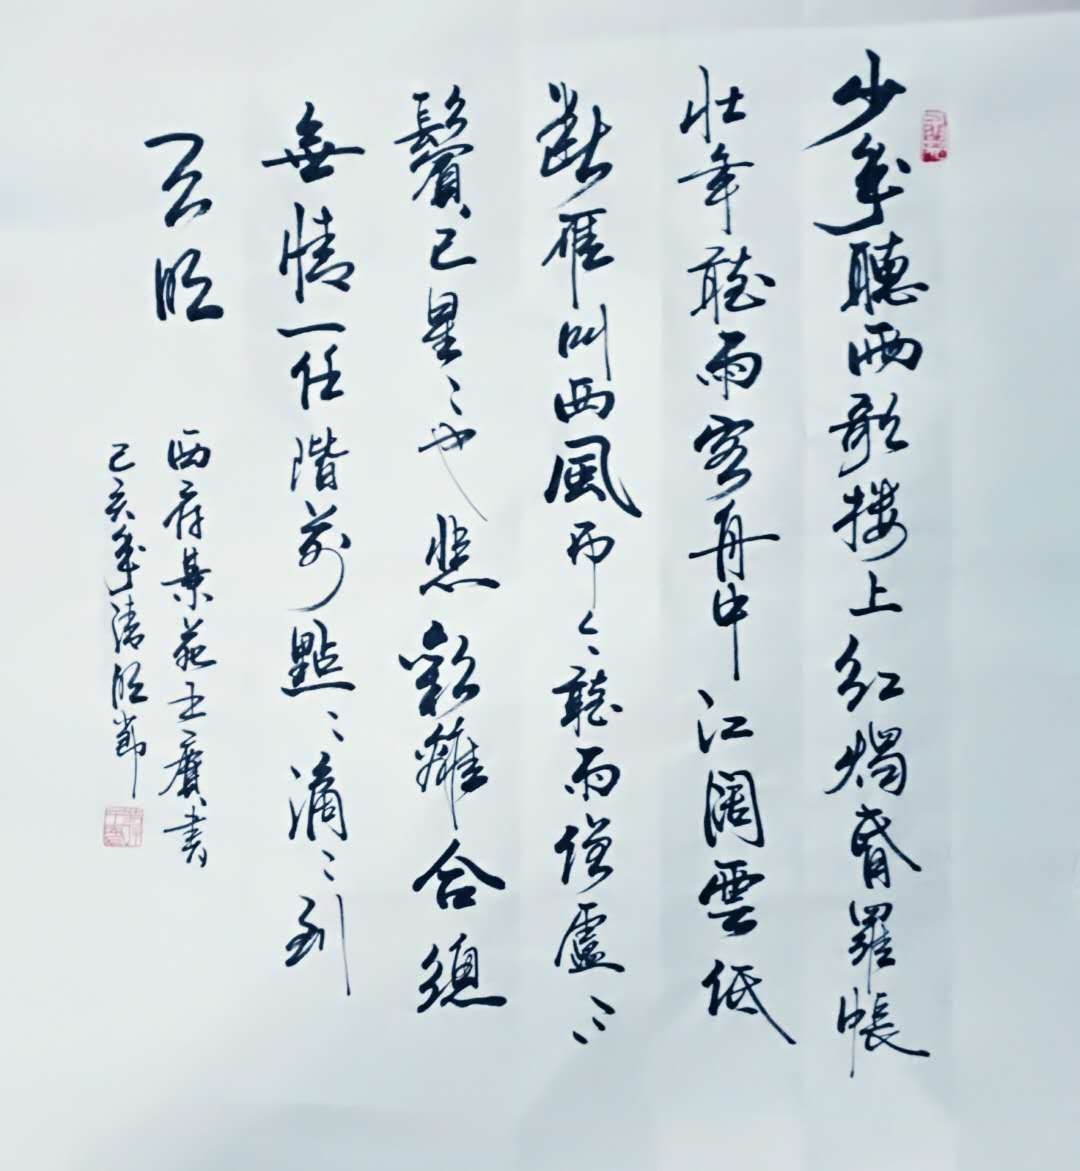 少年聽雨歌樓上紅燭昏羅帳
壯年聽雨客舟中江闊雲低
斷雁叫西風而今聽雨僧盧下
鬢已星〻也悲歡離合總
無情一任階前點〻滴〻到
天明
西府棊苑王賡書
己亥年清明節